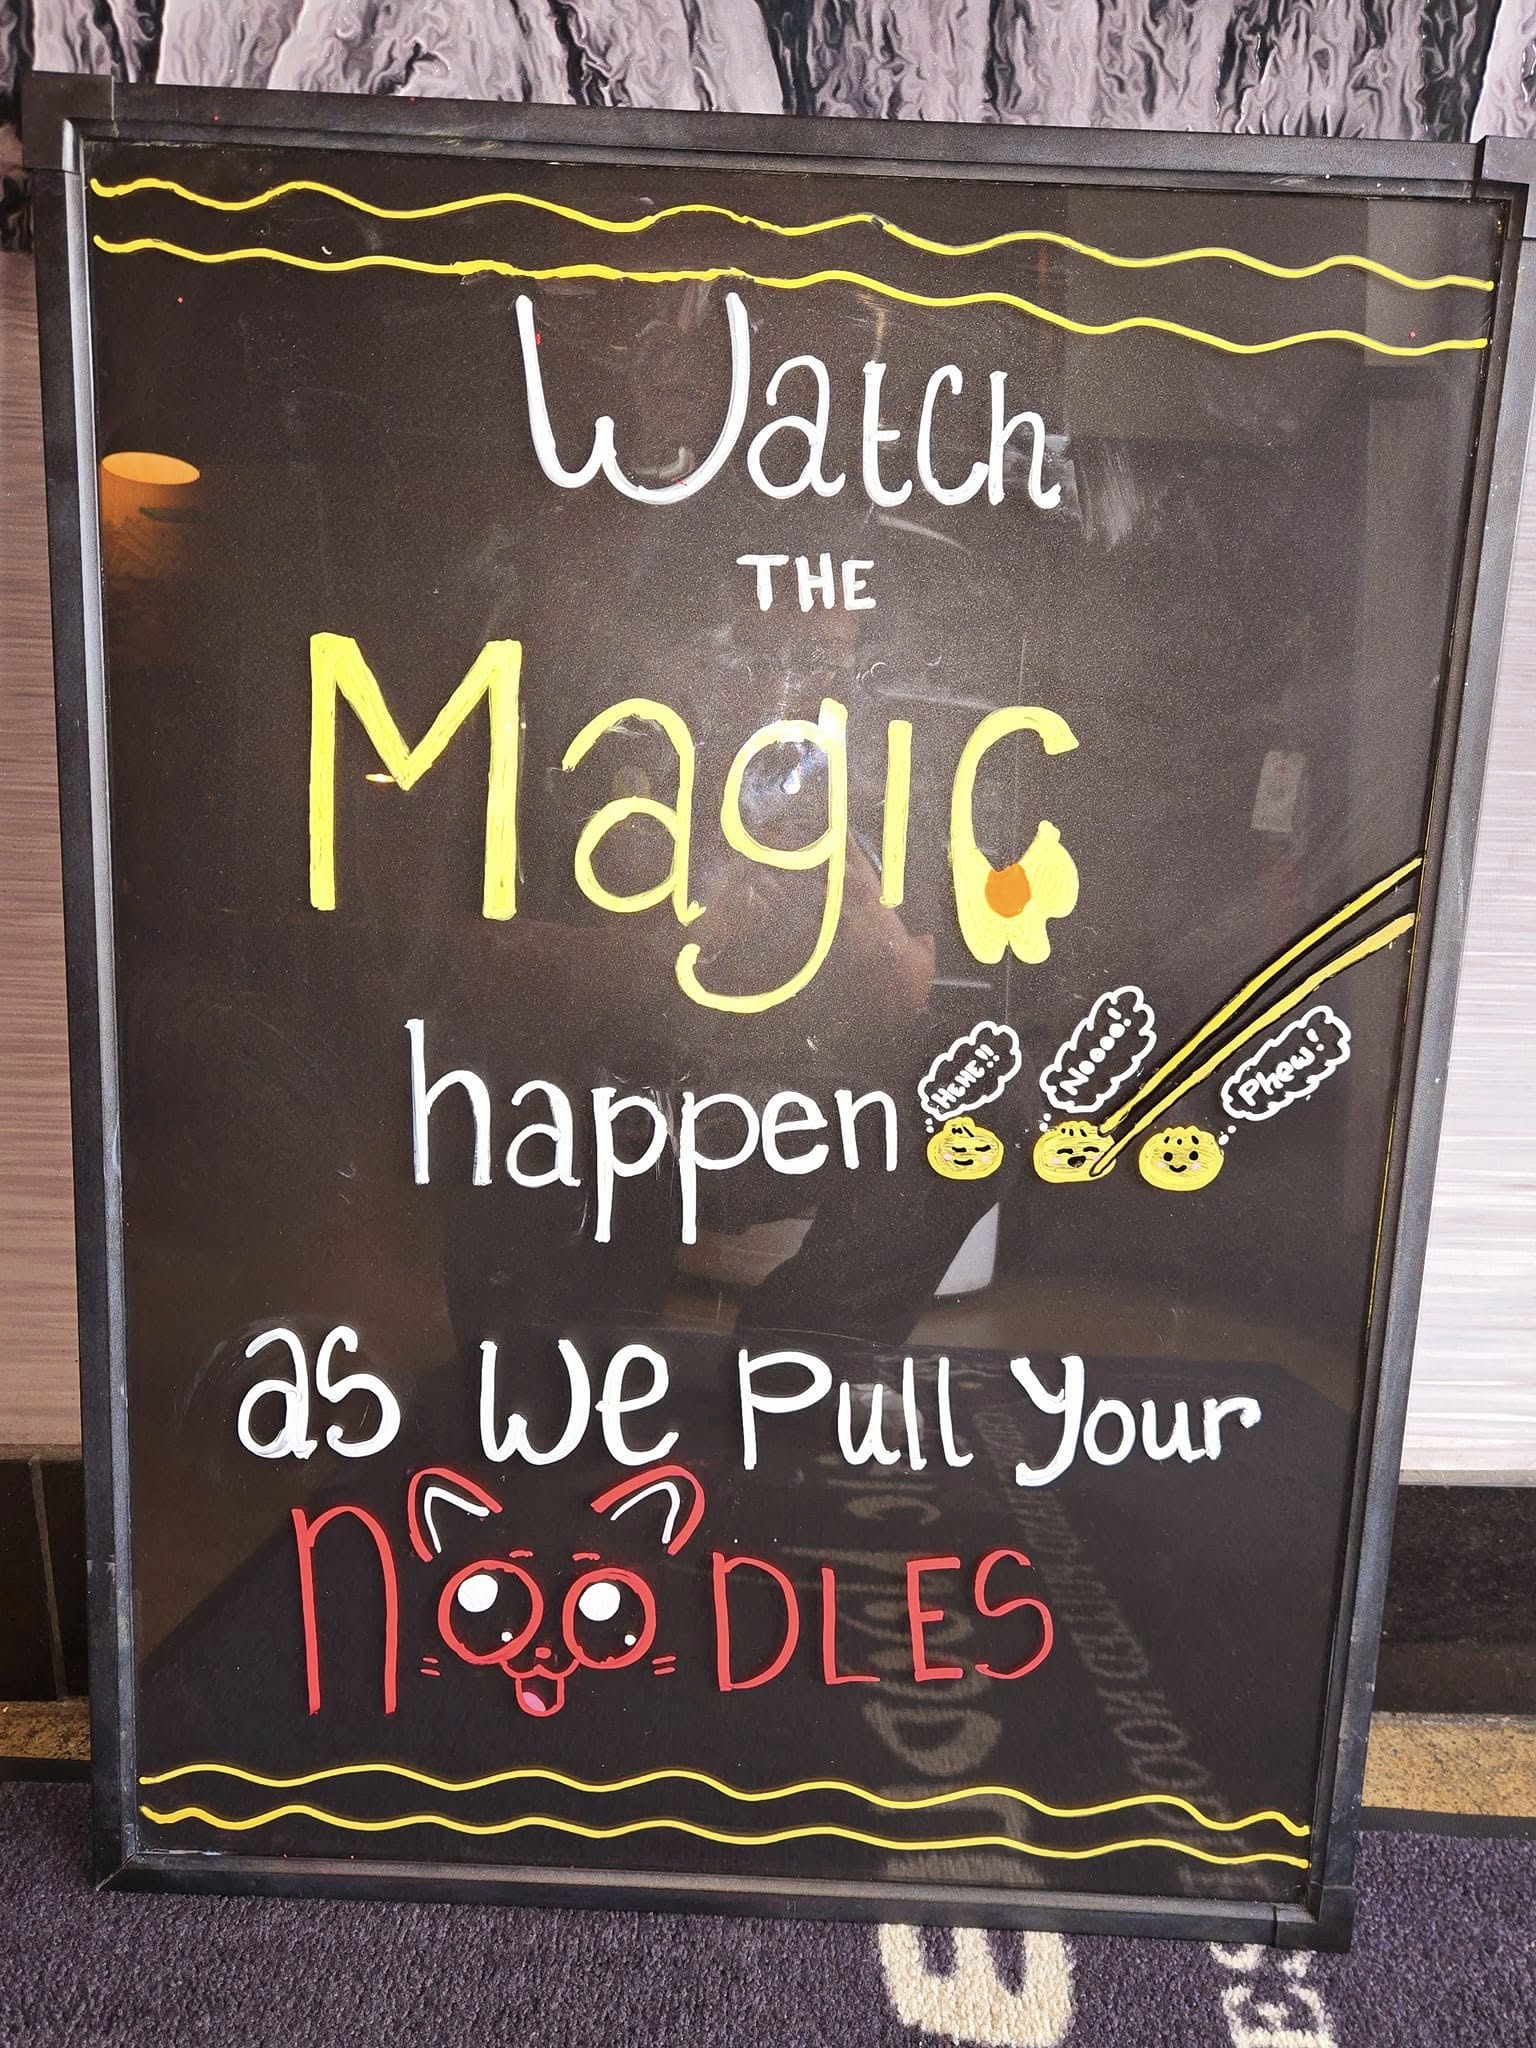 Watch
THE
Magic
happen
HEHE!!
Noooo!
Phew!
as we Pull your
nooDLES